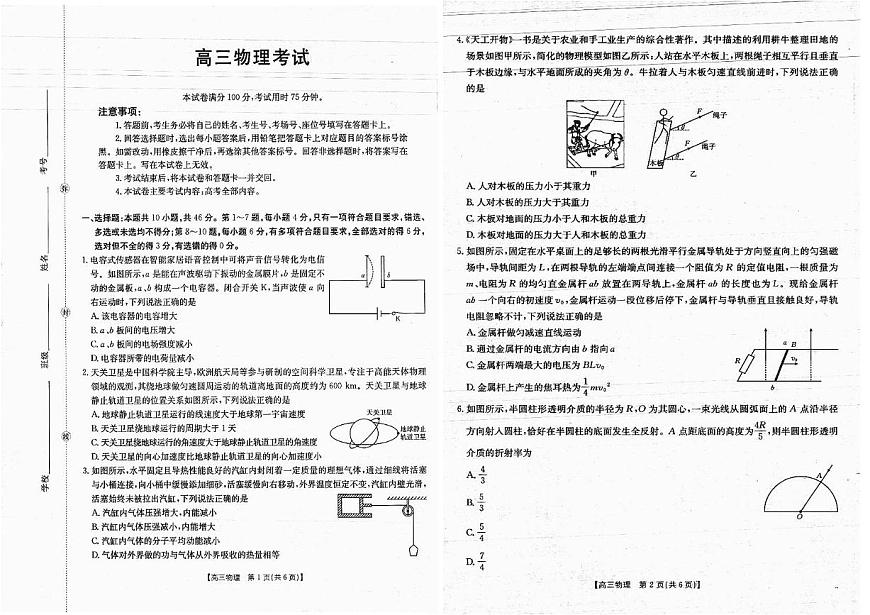 高三物理考试
本试卷满分100分,考试用时75分钟。
注意事项:
1.答题前,考生务必将自己的姓名、考生号、考场号、座位号填写在答题卡上。
2.回答选择题时,选出每小题答案后,用铅笔把答题卡上对应题目的答案标号涂
黑。如需改动,用橡皮擦干净后,再选涂其他答案标号。回答非选择题时,将答案写在
答题卡上。写在本试卷上无效。
3.考试结束后,将本试卷和答题卡一并交回。
4.本试卷主要考试内容:高考全部内容。
一、选择题:本题共10小题,共46分。第1~7题,每小题4分,只有一项符合题目要求,错选、
多选或未选均不得分;第8~10题,每小题6分,有多项符合题目要求,全部选对的得6分,
选对但不全的得3分,有选错的得0分。
1.电容式传感器在智能家居语音控制中可将声音信号转化为电信
号。如图所示,a是能在声波驱动下振动的金属膜片,b是固定不
动的金属板,a、b构成一个电容器。闭合开关K,当声波使a向
右运动时,下列说法正确的是
A.该电容器的电容增大
B.a、b板间的电压增大
C.a、b板间的电场强度减小
D.电容器所带的电荷量减小
a
b
K
2.天关卫星是中国科学院主导,欧洲航天局等参与研制的空间科学卫星,专注于高能天体物理
领域的观测,其绕地球做匀速圆周运动的轨道离地面的高度约为600 km。天关卫星与地球
静止轨道卫星的位置关系如图所示,下列说法正确的是
A.地球静止轨道卫星运行的线速度大于地球第一宇宙速度
B.天关卫星绕地球运行的周期大于1天
C.天关卫星绕地球运行的角速度大于地球静止轨道卫星的角速度
D.天关卫星的向心加速度比地球静止轨道卫星的向心加速度小
天关卫星
地球静止
轨道卫星
3.如图所示,水平固定且导热性能良好的汽缸内封闭着一定质量的理想气体,通过细线将活塞
与小桶连接,向小桶中缓慢添加细砂,活塞缓慢向右移动,外界温度恒定不变,汽缸内壁光滑,
活塞始终未被拉出汽缸,下列说法正确的是
A.汽缸内气体压强增大,内能减小
B.汽缸内气体压强减小,内能增大
C.汽缸内气体的分子平均动能减小
D.气体对外界做的功与气体从外界吸收的热量相等
【高三物理 第1页(共6页)】
考号
姓名
班级
学校
4.《天工开物》一书是关于农业和手工业生产的综合性著作。其中描述的利用耕牛整理田地的
场景如图甲所示,简化的物理模型如图乙所示:人站在水平木板上,两根绳子相互平行且垂直
于木板边缘,与水平地面所成的夹角为θ。牛拉着人与木板匀速直线前进时,下列说法正确
的是
F
绳子
θ
F
绳子
θ
木板
甲
乙
A.人对木板的压力小于其重力
B.人对木板的压力大于其重力
C.木板对地面的压力小于人和木板的总重力
D.木板对地面的压力大于人和木板的总重力
5.如图所示,固定在水平桌面上的足够长的两根光滑平行金属导轨处于方向竖直向上的匀强磁
场中,导轨间距为L,在两根导轨的左端端点间连接一个阻值为R的定值电阻,一根质量为
m、电阻为R的均匀直金属杆ab放置在两导轨上,金属杆ab的长度也为L。现给金属杆
ab一个向右的初速度v₀,金属杆运动一段位移后停下,金属杆与导轨垂直且接触良好,导轨
电阻忽略不计,下列说法正确的是
A.金属杆做匀减速直线运动
B.通过金属杆的电流方向由b指向a
C.金属杆两端最大的电压为BLv₀
D.金属杆上产生的焦耳热为1/4 mv₀²
R
a B
v₀
b
6.如图所示,半圆柱形透明介质的半径为R,O为其圆心,一束光线从圆弧面上的A点沿半径
方向射入圆柱,恰好在半圆柱的底面发生全反射。A点距底面的高度为4R/5,则半圆柱形透明
介质的折射率为
A. 4/3
B. 5/3
C. 5/4
D. 7/4
A
O
【高三物理 第2页(共6页)】